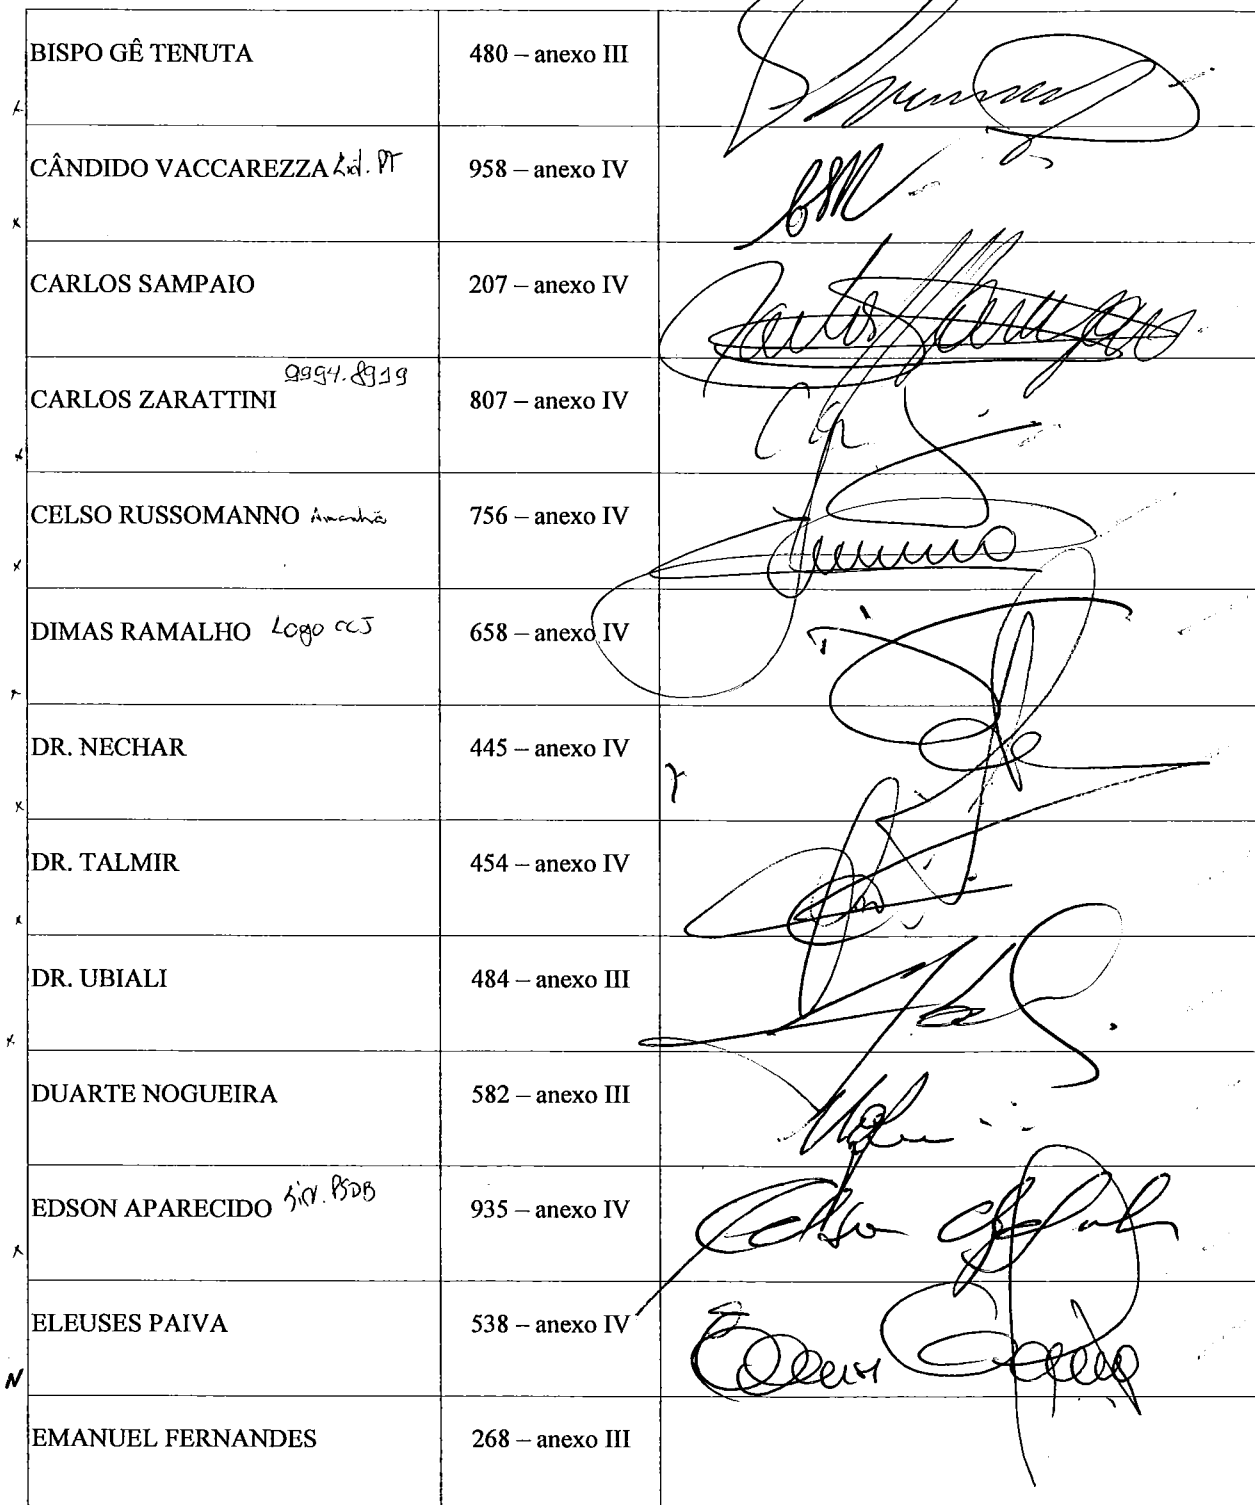 BISPO GÊ TENUTA 480 – anexo III
CÂNDIDO VACCAREZZA Lid. PT 958 – anexo IV
CARLOS SAMPAIO 207 – anexo IV
Carlos Sampaio
9994.8919
CARLOS ZARATTINI 807 – anexo IV
CELSO RUSSOMANNO Amanhã 756 – anexo IV
DIMAS RAMALHO Logo CCJ 658 – anexo IV
DR. NECHAR 445 – anexo IV
DR. TALMIR 454 – anexo IV
DR. UBIALI 484 – anexo III
DUARTE NOGUEIRA 582 – anexo III
EDSON APARECIDO PSDB 935 – anexo IV
Edson
ELEUSES PAIVA 538 – anexo IV
N
EMANUEL FERNANDES 268 – anexo III